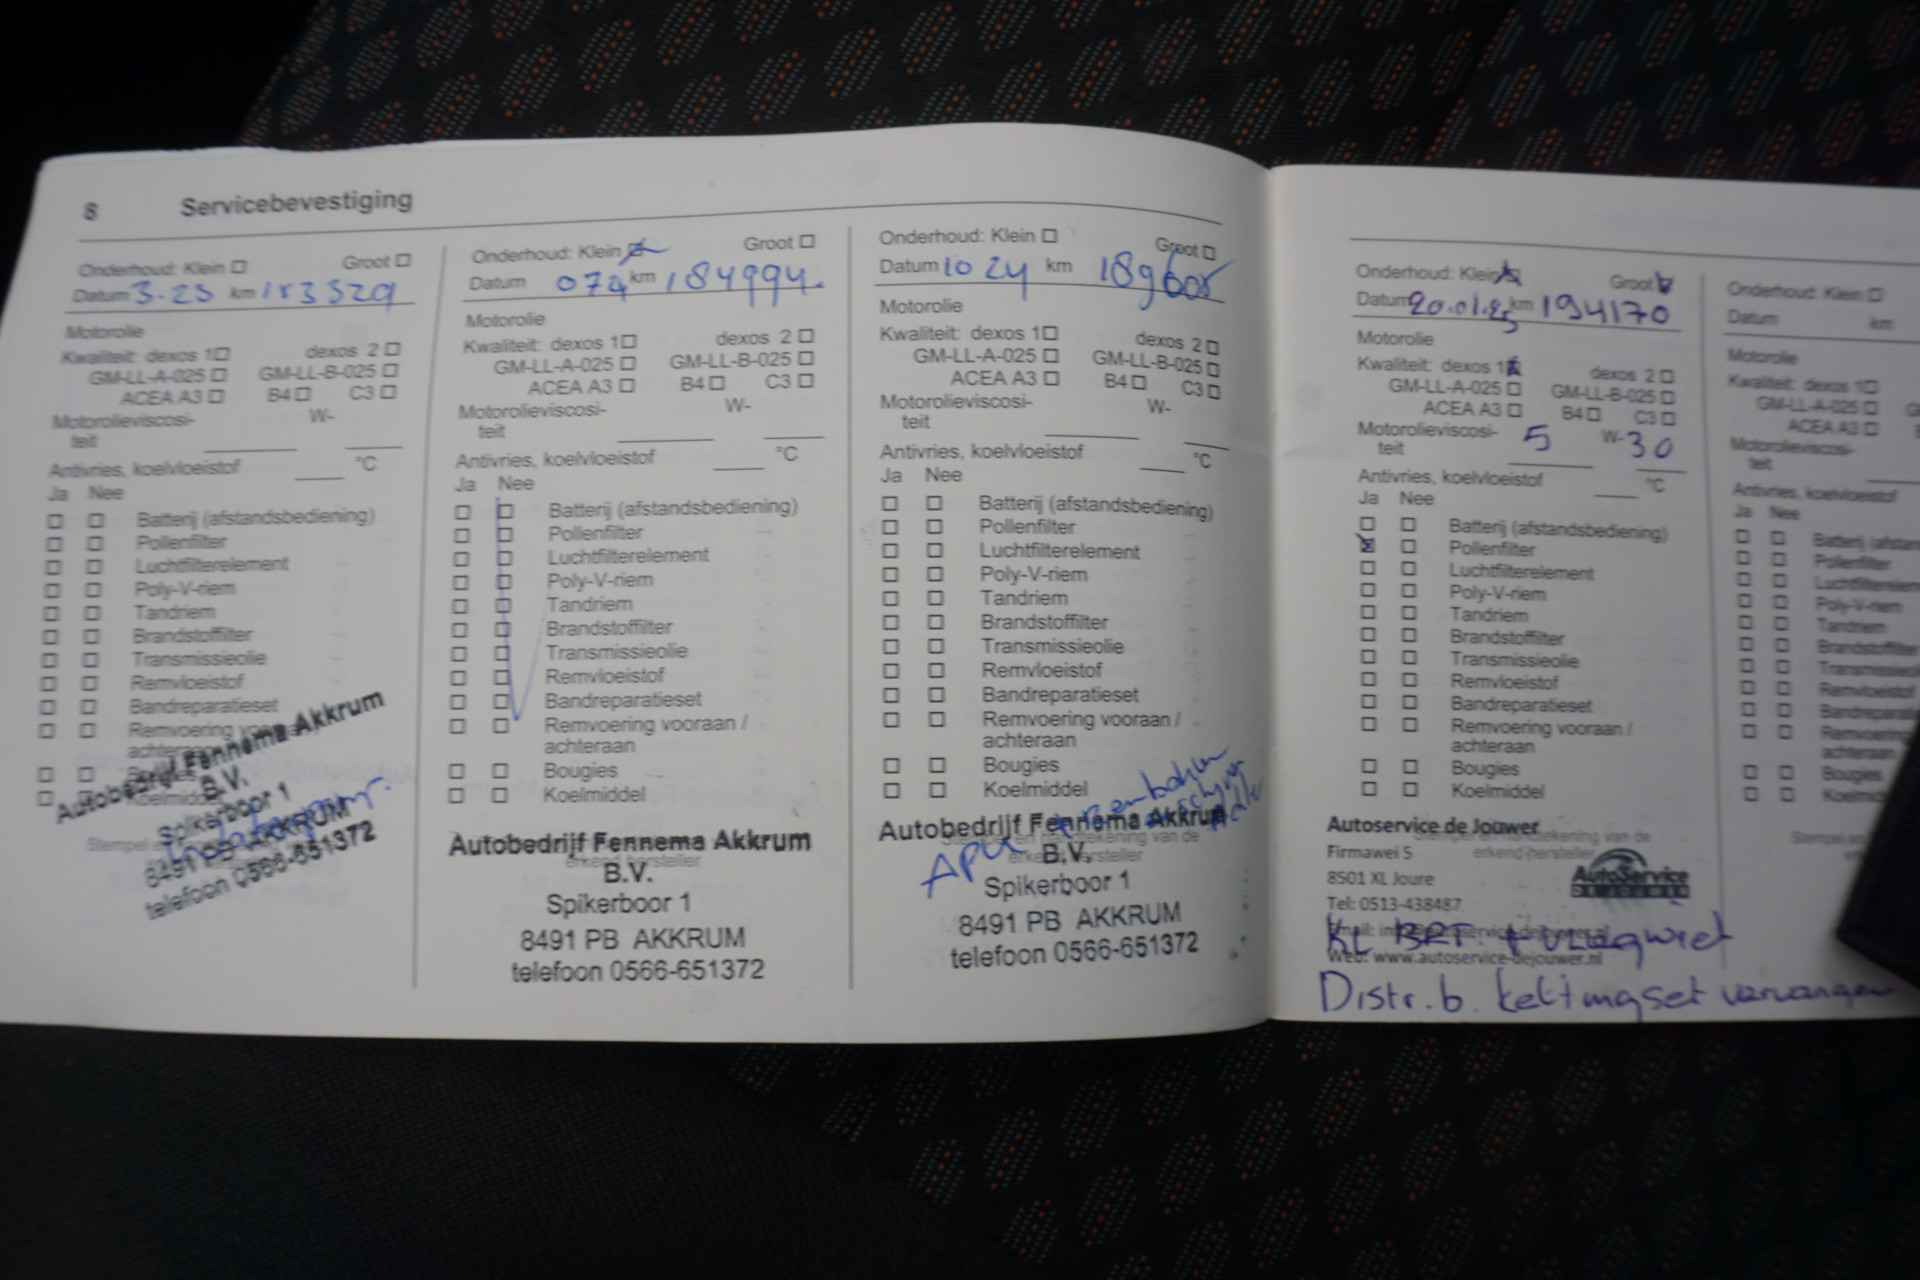 8 Servicebevestiging
Onderhoud: Klein ☐ Groot ☐
Datum 3-23 km 183329
Motorolie
Kwaliteit: dexos 1☐ dexos 2 ☐
GM-LL-A-025 ☐ GM-LL-B-025 ☐
ACEA A3 ☐ B4 ☐ C3 ☐
Motorolieviscosi- W-
teit
Antivries, koelvloeistof °C
Ja Nee
☐ ☐ Batterij (afstandsbediening)
☐ ☐ Pollenfilter
☐ ☐ Luchtfilterelement
☐ ☐ Poly-V-riem
☐ ☐ Tandriem
☐ ☐ Brandstoffilter
☐ ☐ Transmissieolie
☐ ☐ Remvloeistof
☐ ☐ Bandreparatieset
☐ ☐ Remvoering
achteraan
☐ ☐
☐ ☐ Koelmiddel
Autobedrijf Fennema Akkrum
B.V.
Spikerboor 1
8491 PB AKKRUM
telefoon 0566-651372
Onderhoud: Klein ☒ Groot ☐
Datum km 184994.
Motorolie
Kwaliteit: dexos 1☐ dexos 2 ☐
GM-LL-A-025 ☐ GM-LL-B-025 ☐
ACEA A3 ☐ B4 ☐ C3 ☐
Motorolieviscosi- W-
teit
Antivries, koelvloeistof °C
Ja Nee
☐ ☐ Batterij (afstandsbediening)
☐ ☐ Pollenfilter
☐ ☐ Luchtfilterelement
☐ ☐ Poly-V-riem
☐ ☐ Tandriem
☐ ☐ Brandstoffilter
☐ ☐ Transmissieolie
☐ ☐ Remvloeistof
☐ ☐ Bandreparatieset
☐ ☐ Remvoering vooraan /
achteraan
☐ ☐ Bougies
☐ ☐ Koelmiddel
Autobedrijf Fennema Akkrum
B.V.
Spikerboor 1
8491 PB AKKRUM
telefoon 0566-651372
Onderhoud: Klein ☐ Groot ☐
Datum 10 24 km 189605
Motorolie
Kwaliteit: dexos 1☐ dexos 2 ☐
GM-LL-A-025 ☐ GM-LL-B-025 ☐
ACEA A3 ☐ B4 ☐ C3 ☐
Motorolieviscosi- W-
teit
Antivries, koelvloeistof °C
Ja Nee
☐ ☐ Batterij (afstandsbediening)
☐ ☐ Pollenfilter
☐ ☐ Luchtfilterelement
☐ ☐ Poly-V-riem
☐ ☐ Tandriem
☐ ☐ Brandstoffilter
☐ ☐ Transmissieolie
☐ ☐ Remvloeistof
☐ ☐ Bandreparatieset
☐ ☐ Remvoering vooraan /
achteraan
☐ ☐ Bougies
☐ ☐ Koelmiddel
Autobedrijf Fennema Akkrum
APK B.V.
Spikerboor 1
8491 PB AKKRUM
telefoon 0566-651372
Onderhoud: Klein ☒ Groot ☒
Datum 20.01.25 km 194170
Motorolie
Kwaliteit: dexos 1☒ dexos 2 ☐
GM-LL-A-025 ☐ GM-LL-B-025 ☐
ACEA A3 ☐ B4 ☐ C3 ☐
Motorolieviscosi- 5 W-30
teit
Antivries, koelvloeistof °C
Ja Nee
☐ ☐ Batterij (afstandsbediening)
☒ ☐ Pollenfilter
☐ ☐ Luchtfilterelement
☐ ☐ Poly-V-riem
☐ ☐ Tandriem
☐ ☐ Brandstoffilter
☐ ☐ Transmissieolie
☐ ☐ Remvloeistof
☐ ☐ Bandreparatieset
☐ ☐ Remvoering vooraan /
achteraan
☐ ☐ Bougies
☐ ☐ Koelmiddel
Autoservice de Jouwer
Firmawei 5
8501 XL Joure
AutoService
DE JOUWER
Tel: 0513-438487
KL BRT + vliegwiel
Web: www.autoservice-dejouwer.nl
Distr.b. kettingset vervangen
Onderhoud: Klein ☐
Datum km
Motorolie
Kwaliteit: dexos 1☐
GM-LL-A-025 ☐
ACEA A3 ☐
Motorolieviscosi-
teit
Antivries, koelvloeistof
Ja Nee
☐ ☐ Batterij
☐ ☐ Pollenfilter
☐ ☐
☐ ☐ Poly-V-riem
☐ ☐ Tandriem
☐ ☐ Brandstoffilter
☐ ☐
☐ ☐ Remvloeistof
☐ ☐
☐ ☐ Remvoering
achteraan
☐ ☐ Bougies
☐ ☐